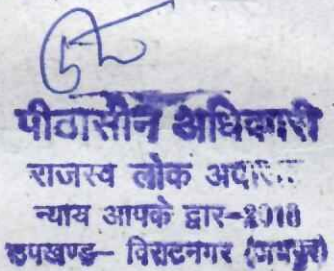 पीठासीन अधिकारी
राजस्व लोक अदालत
न्याय आपके द्वार-2018
उपखण्ड- विराटनगर (जयपुर)